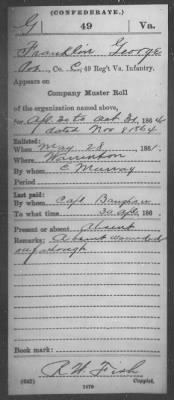 (CONFEDERATE.)
G 49 Va.
Franklin George
Co. C, 49 Reg't Va. Infantry.
Appears on
Company Muster Roll
of the organization named above,
for Apl 30 to Oct 31, 1864
dated Nov 8 1864
Enlisted:
When May 28, 1861.
Where Warrenton
By whom E Murray
Period
Last paid:
By whom Capt
To what time 30 Apl, 186
Present or absent Absent
Remarks: Absent wounded
on furlough
Book mark:
R W Fish
(642) Copyist.